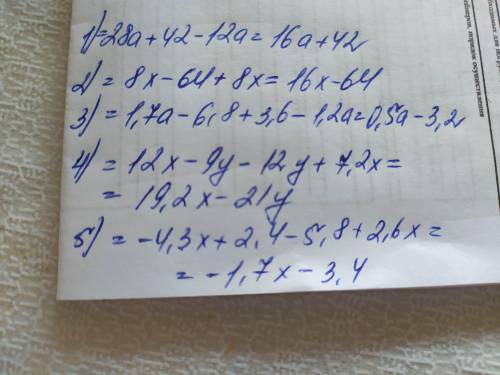 1) = 28a + 42 - 12a = 16a + 42
2) = 8x - 64 + 8x = 16x - 64
3) = 1,7a - 6,8 + 3,6 - 1,2a = 0,5a - 3,2
4) = 12x - 9y - 12y + 7,2x =
= 19,2x - 21y
5) = -4,3x + 2,4 - 5,8 + 2,6x =
= -1,7x - 3,4